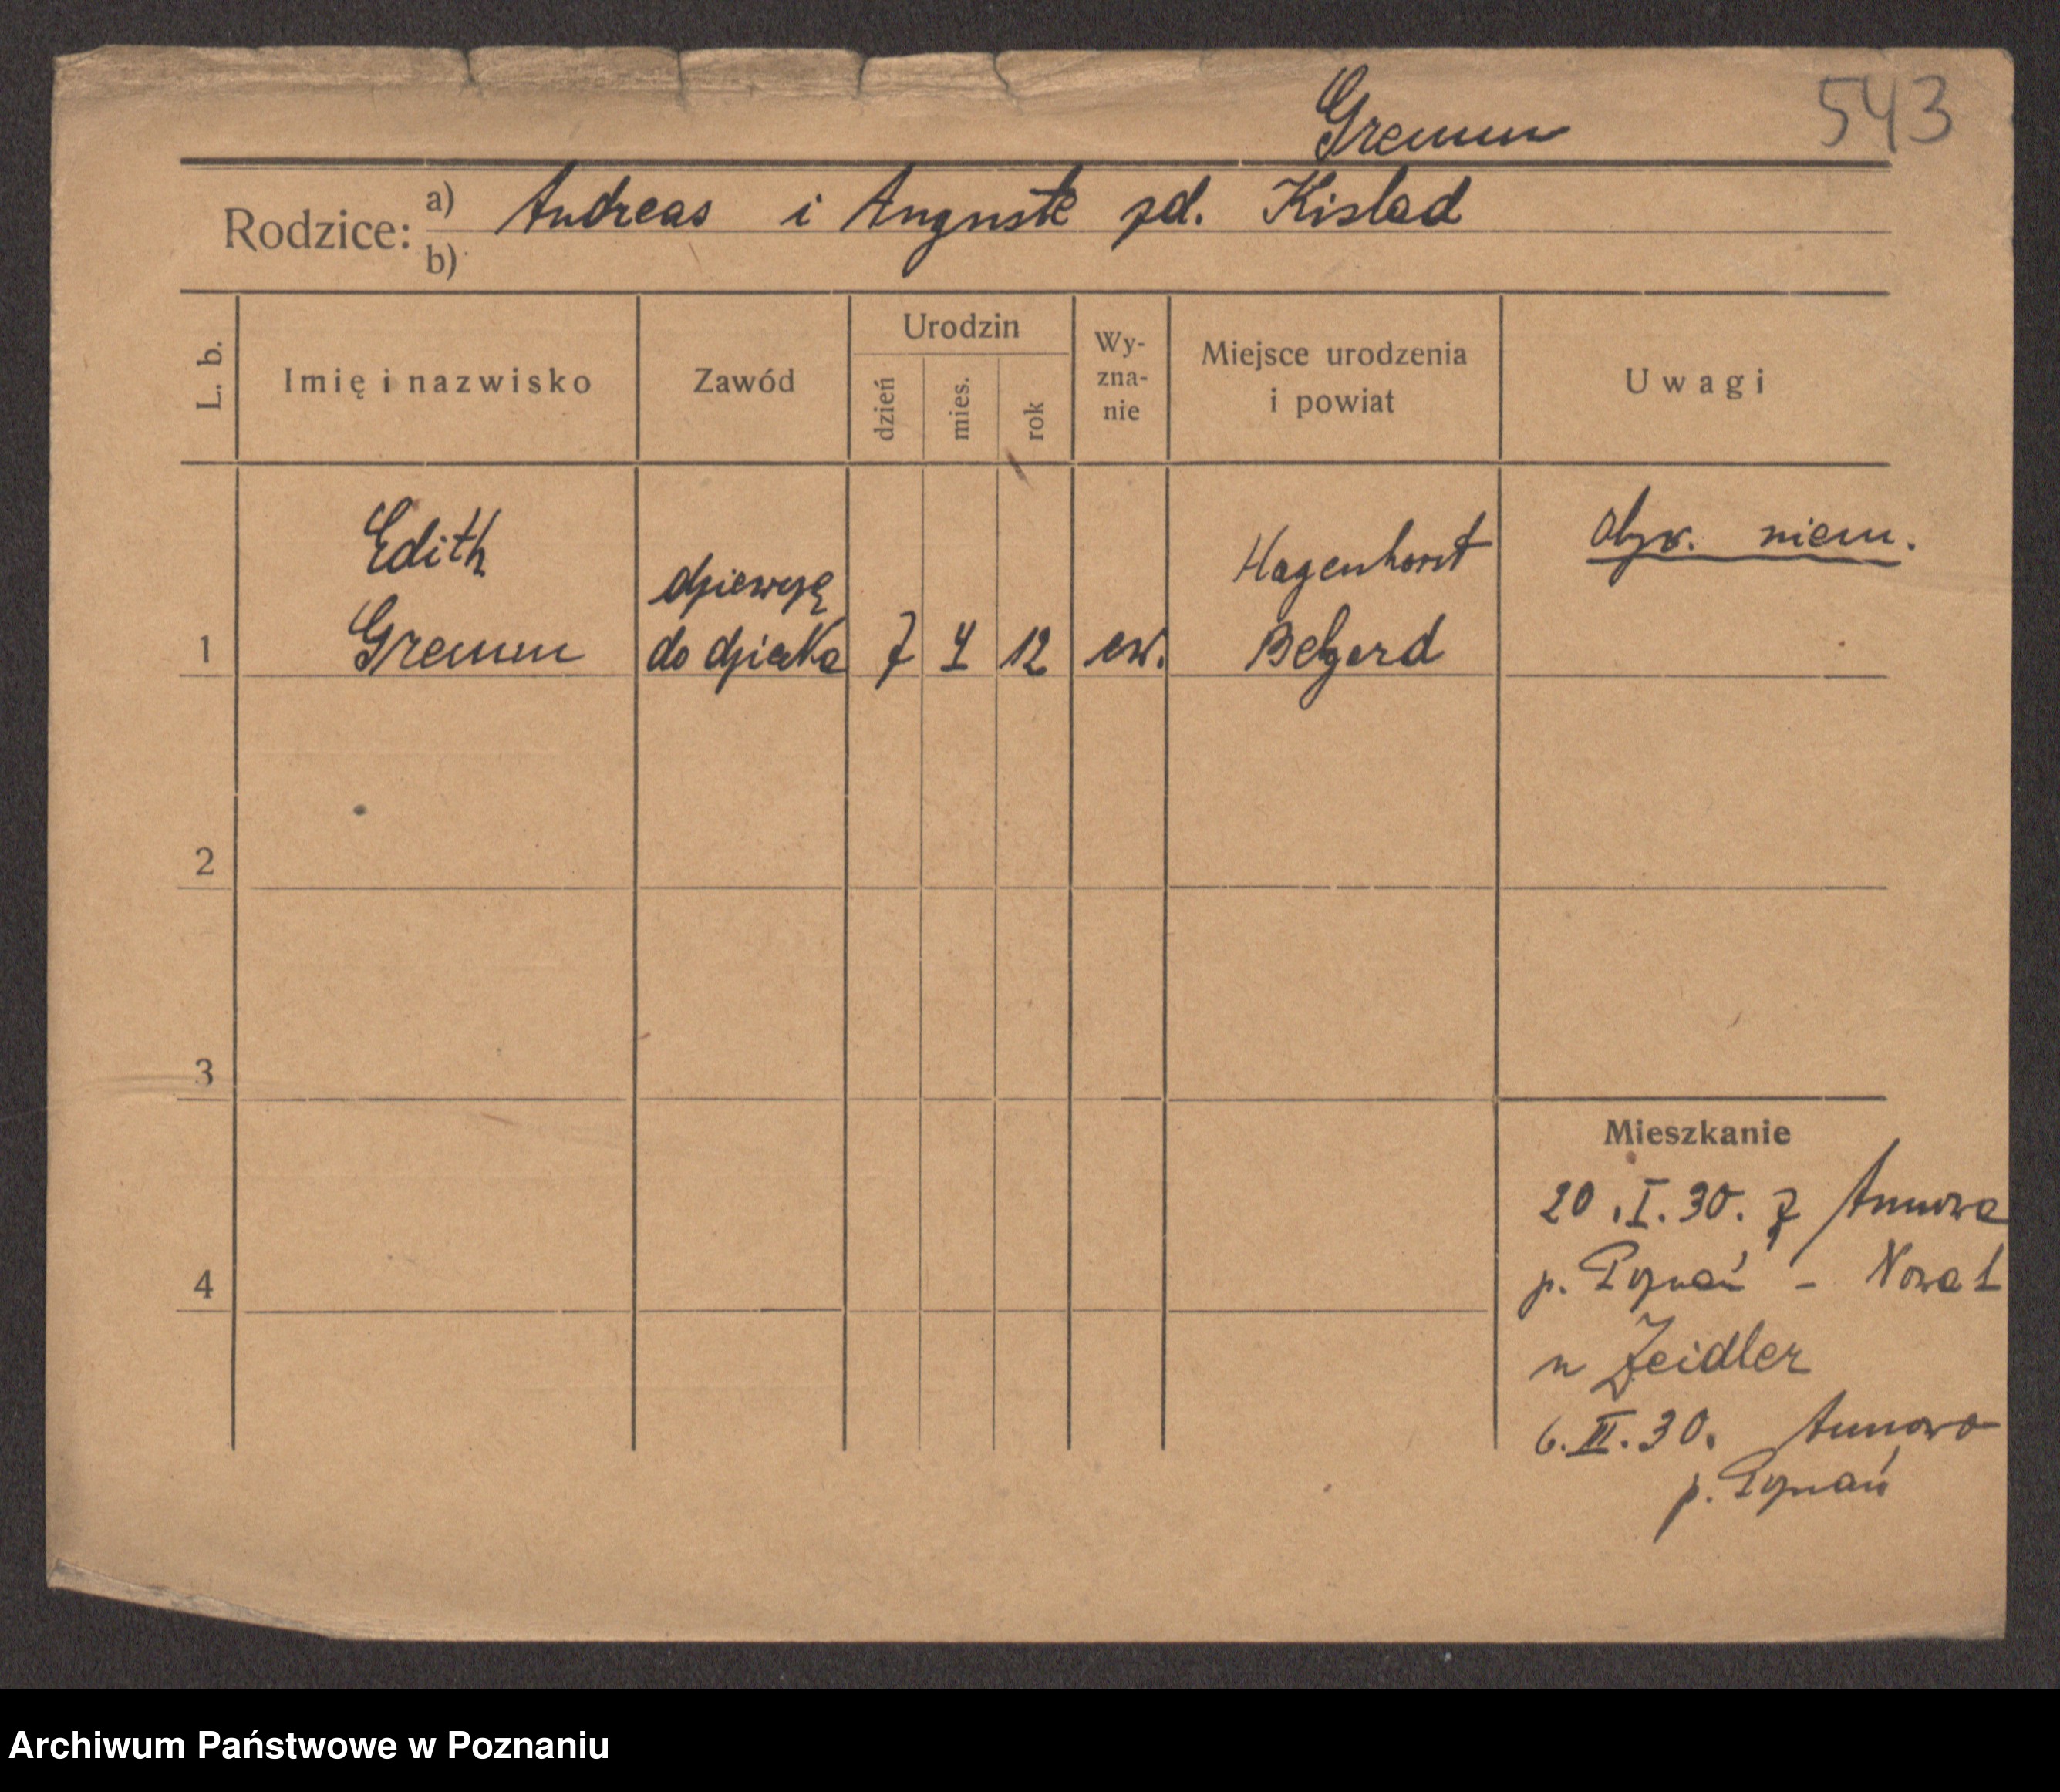 Gremm
543
Rodzice: a) Andreas i Auguste zd. Kislad
b)
L. b.
Imię i nazwisko
Zawód
Urodzin
dzień
mies.
rok
Wy-
zna-
nie
Miejsce urodzenia
i powiat
Uwagi
Edith
Gremm
do dziecka
1
7
4
12
ew.
Hagenhorst
Belgard
obyw. niem.
2
3
4
Mieszkanie
20.I.30. z Annowa
p. Poznań - Nowa 1
u Zeidler
6.II.30. Annowo
p. Poznań
Archiwum Państwowe w Poznaniu